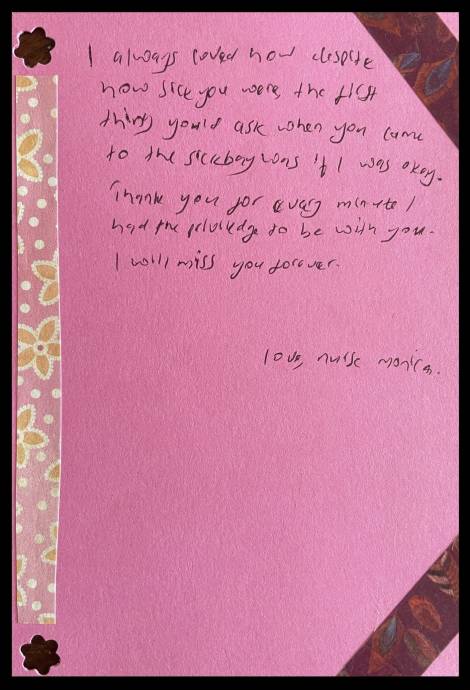 I always loved how despite
how sick you were, the first
thing you'd ask when you came
to the sickbay was if I was okay.
Thank you for every minute I
had the priviledge to be with you.
I will miss you forever.
love, nurse monica.